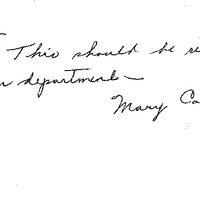 This should be
department—
Mary